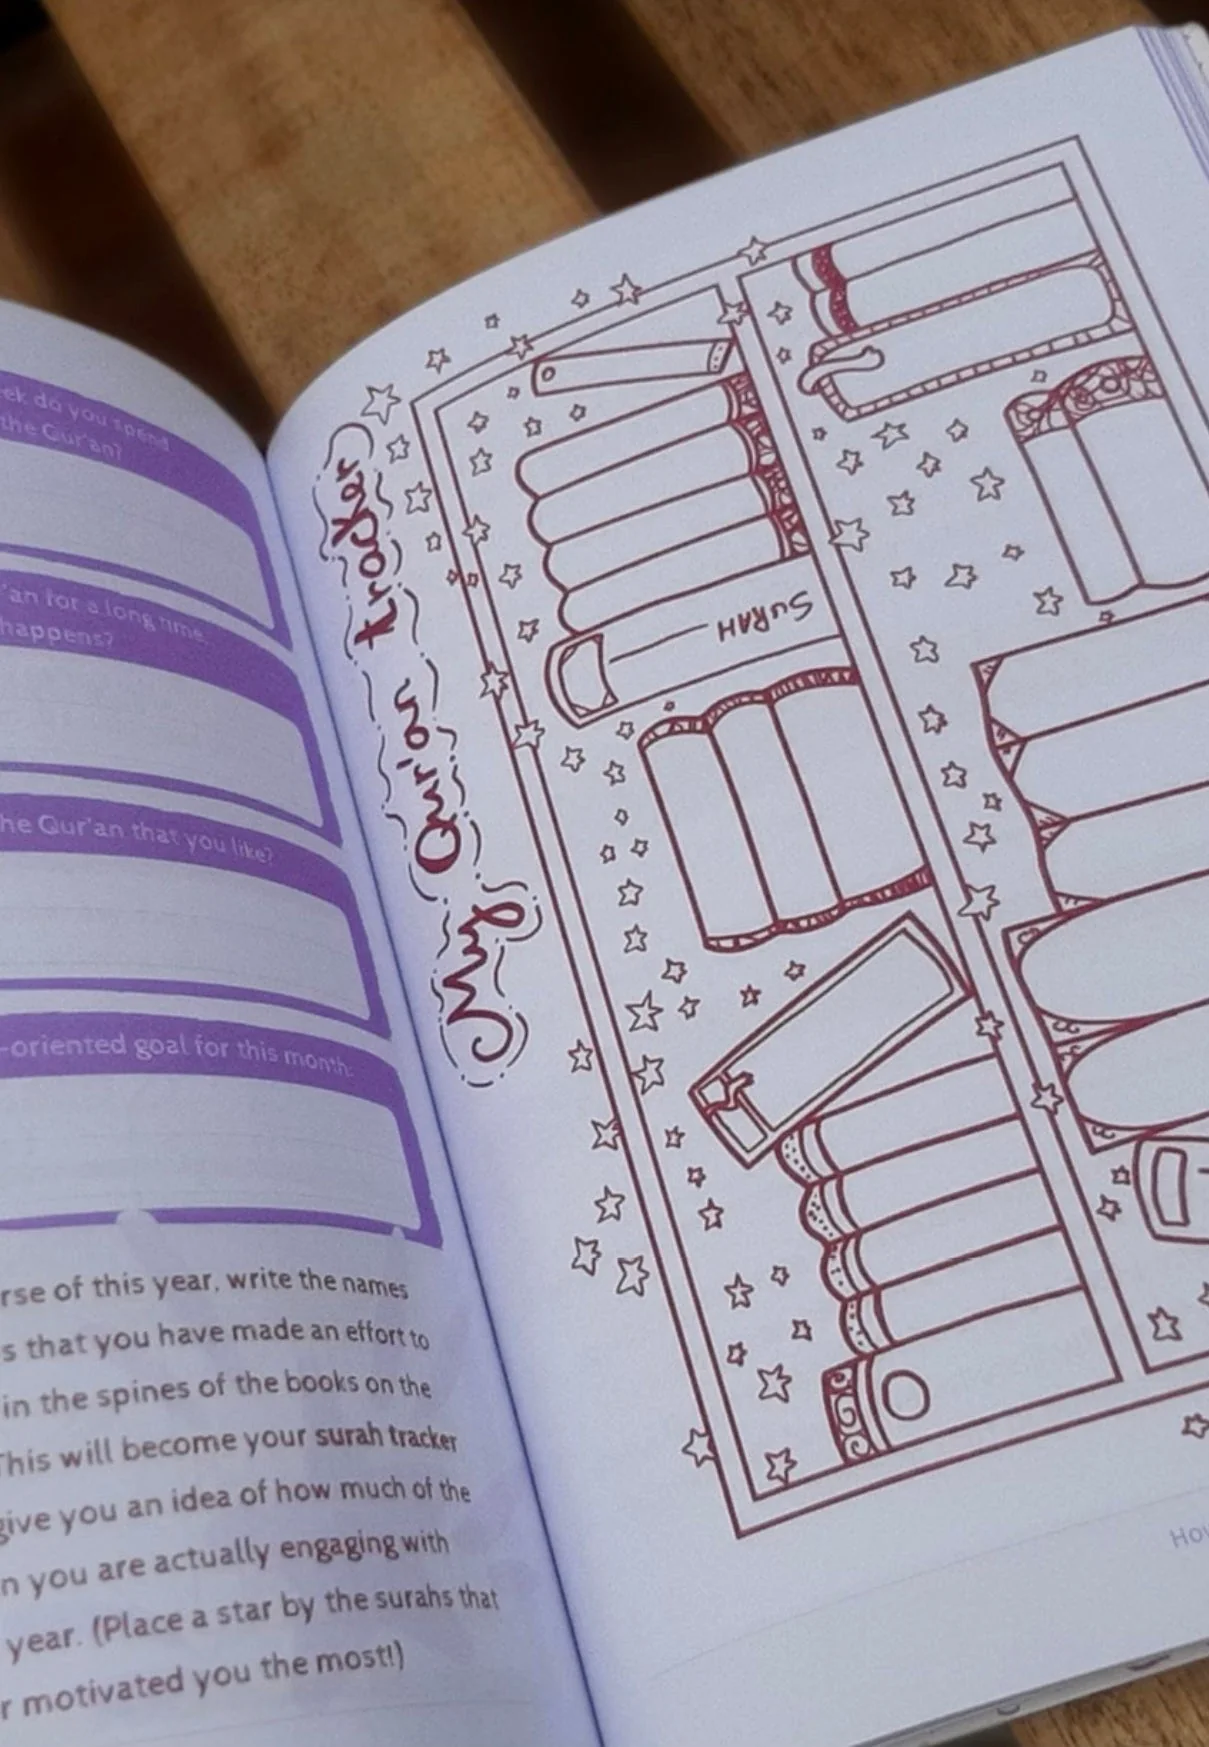 ek do you spend
the Qur'an?
an for a long time
happens?
he Qur'an that you like?
-oriented goal for this month:
rse of this year, write the names
s that you have made an effort to
in the spines of the books on the
This will become your surah tracker
give you an idea of how much of the
n you are actually engaging with
year. (Place a star by the surahs that
r motivated you the most!)
My Qur'an tracker
SURAH